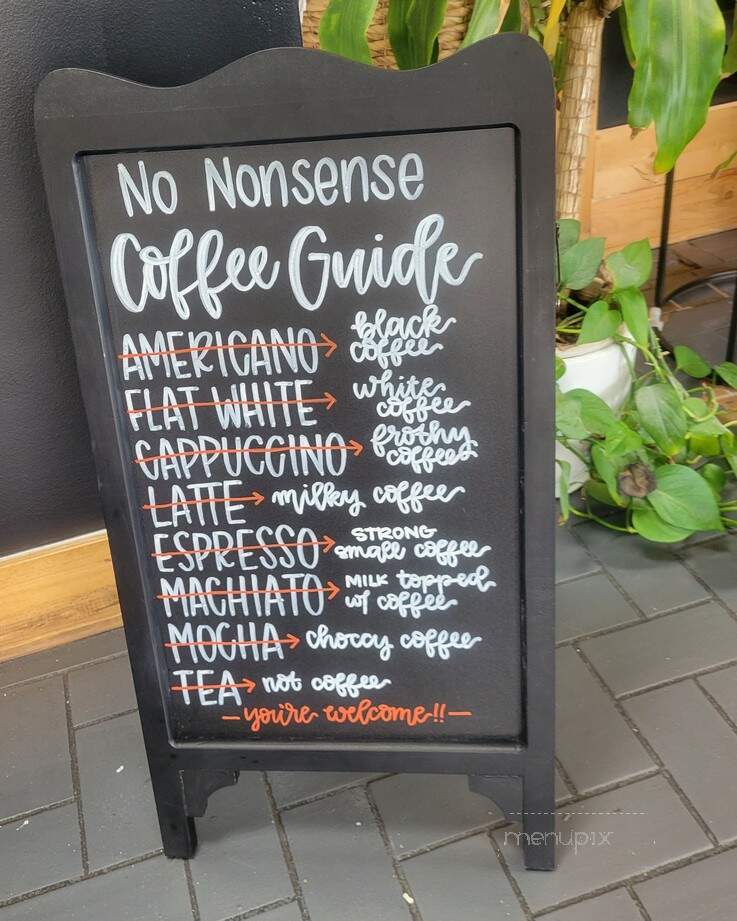 No Nonsense
Coffee Guide
AMERICANO → black coffee
FLAT WHITE → white coffee
CAPPUCCINO → frothy coffee
LATTE → milky coffee
ESPRESSO → STRONG small coffee
MACHIATO → MILK topped w/ coffee
MOCHA → choccy coffee
TEA → not coffee
— you're welcome!! —
menupix